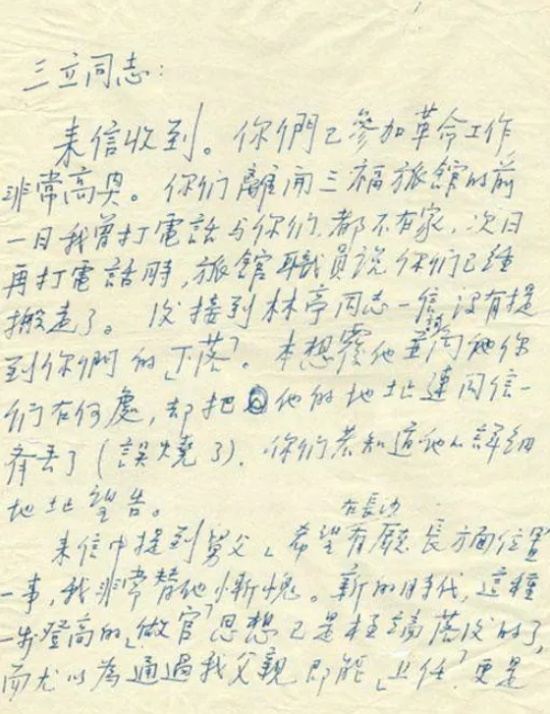 三立同志：
来信收到。你們已參加革命工作
非常高兴。你们離開三福旅館的前
一日我曾打電話与你们，都不在家，次日
再打電話時，旅館職員说你们已経
搬走了。後接到林亭同志一信，没有提
到你們的「下落」。本想覆他並詢他你
们在何處，却把他的地址連同信一
齊丢了（誤燒了）。你们若知道他的詳細
地址望告。
在長沙
来信中提到舅父「希望有廳長方面位置」
一事，我非常替他慚愧。新的時代，這種
一步登高的「做官」思想已是極端落後的了，
而尤以為通過我父親即能「上任」更是